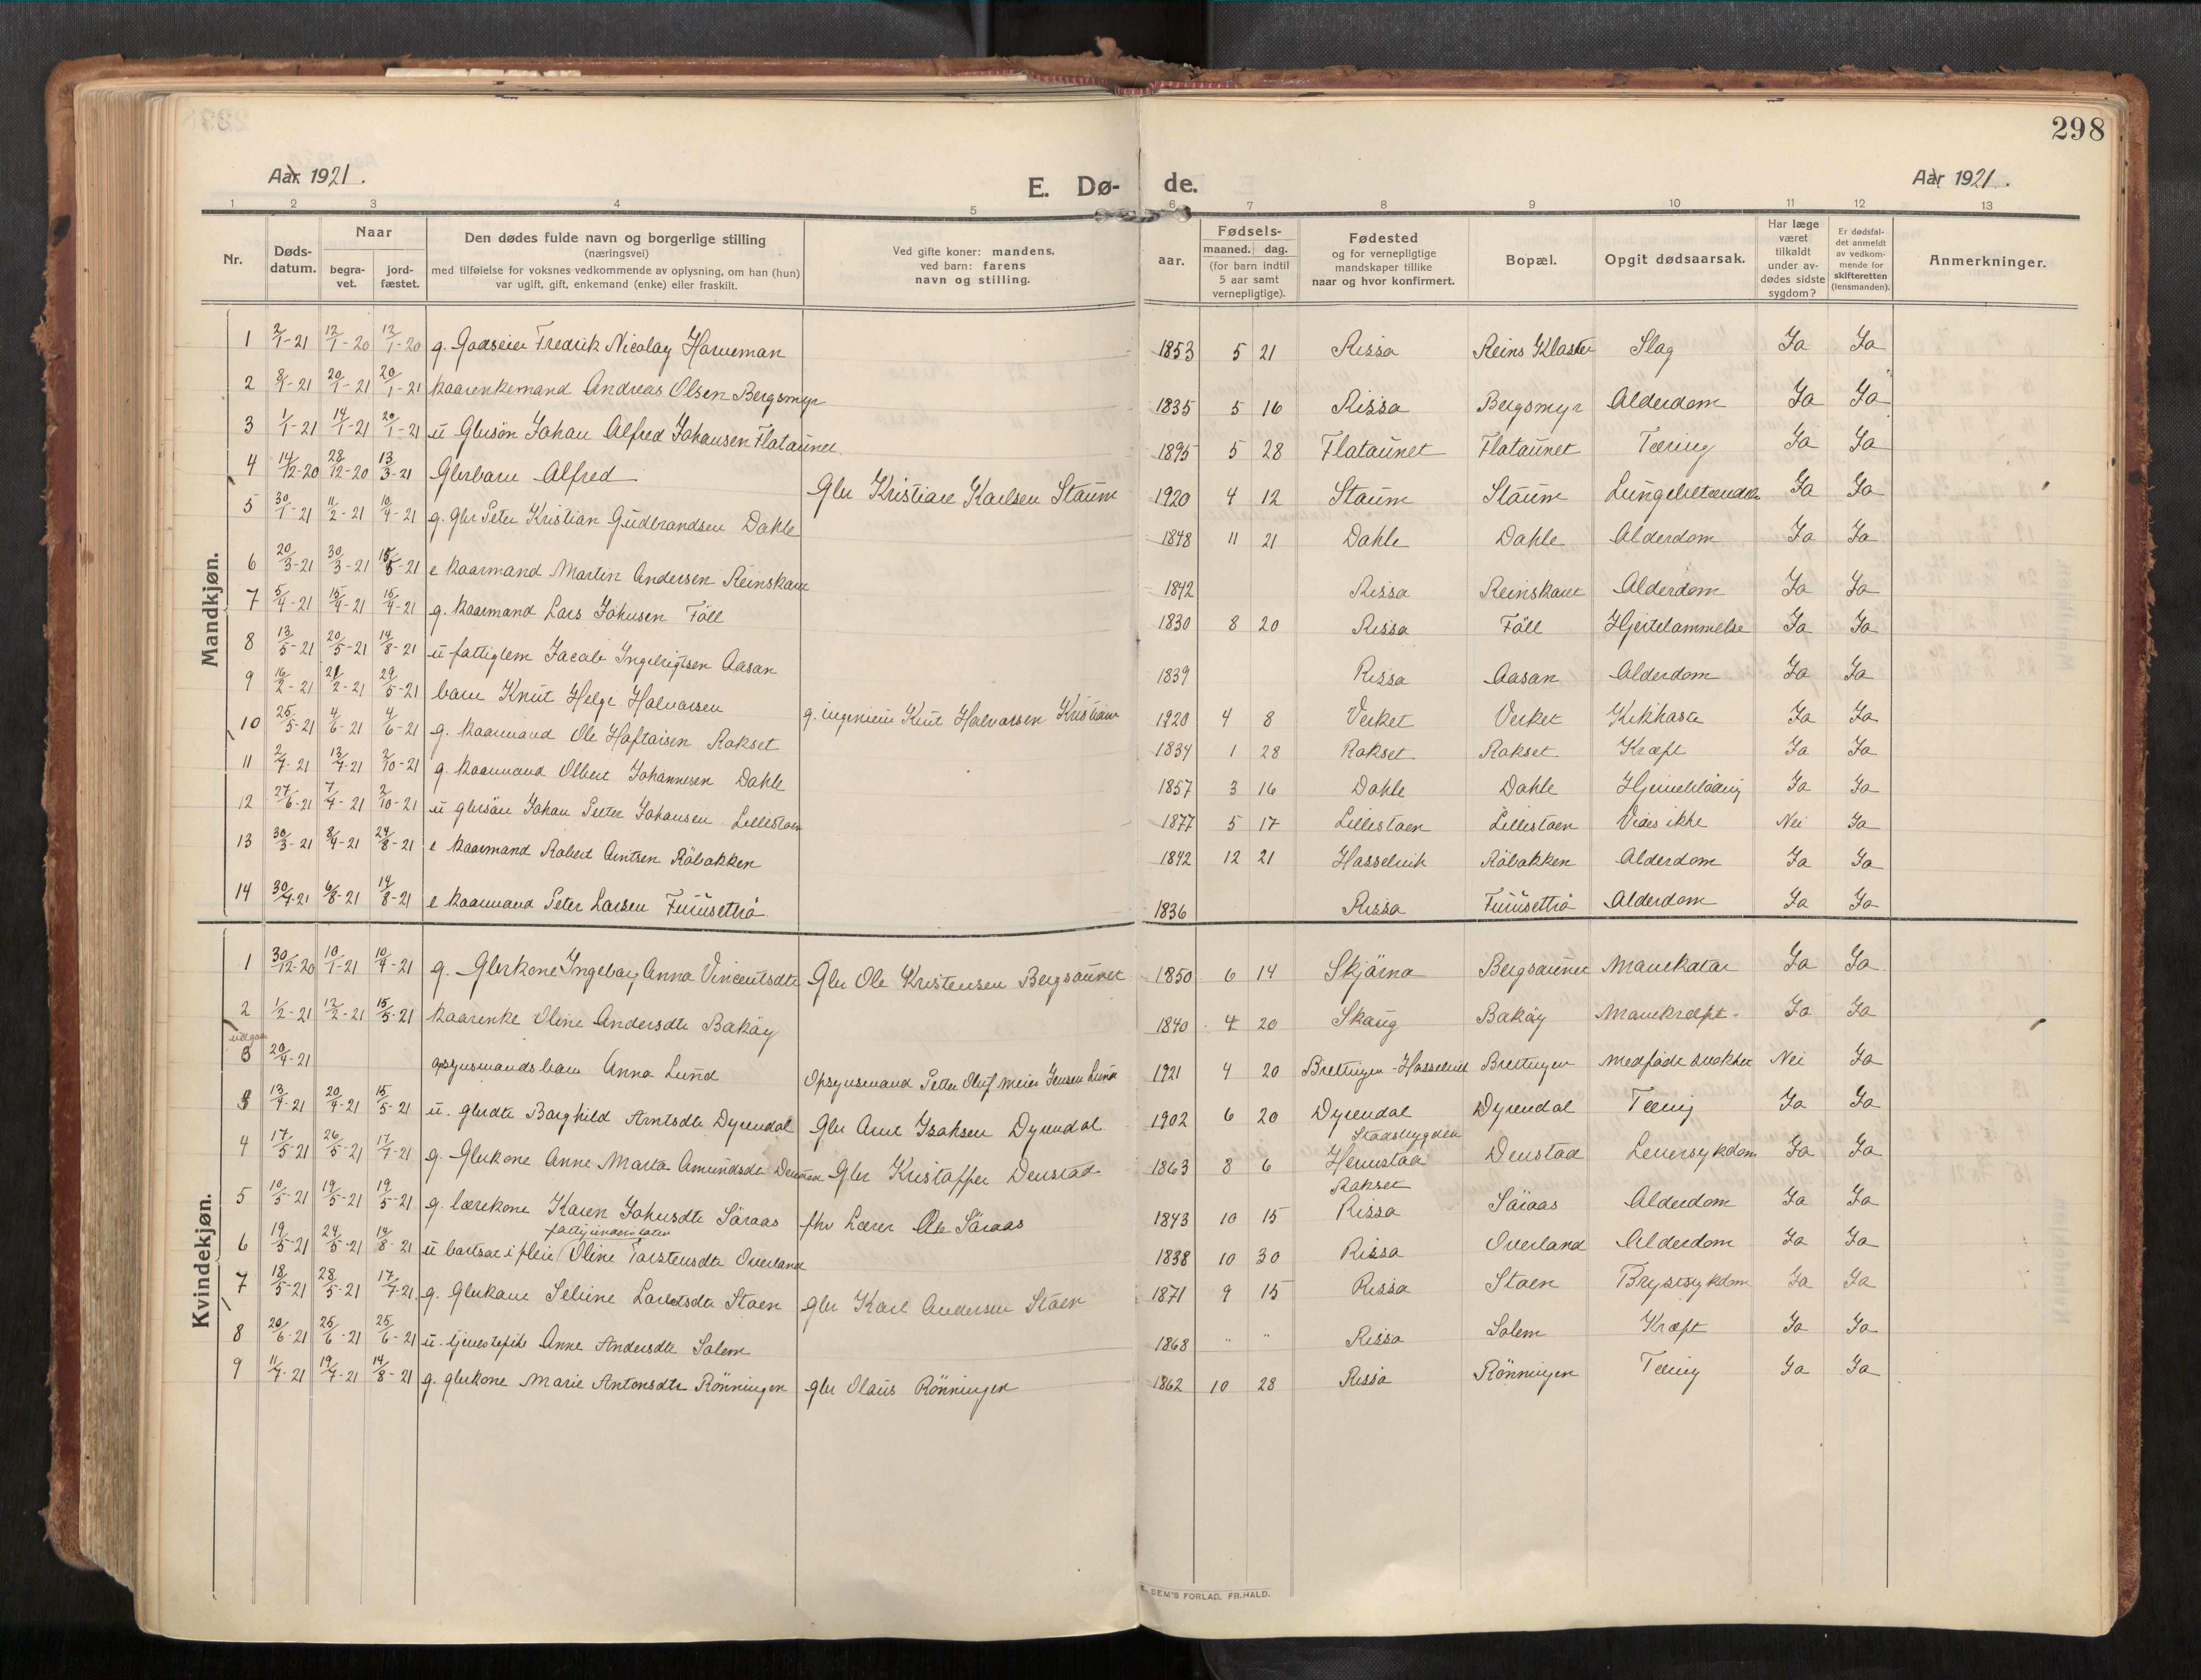 298
Aar. 1921.
E. Dø- de.
Aar 1921.
1 2 3 4 5 6 7 8 9 10 11 12 13
Nr.
Døds-datum.
Naar
begra-vet.
jord-fæstet.
Den dødes fulde navn og borgerlige stilling
(næringsvei)
med tilføielse for voksnes vedkommende av oplysning, om han (hun)
var ugift, gift, enkemand (enke) eller fraskilt.
Ved gifte koner: mandens,
ved barn: farens
navn og stilling.
Fødsels-
aar.
maaned. dag.
(for barn indtil
5 aar samt
vernepligtige).
Fødested
og for vernepligtige
mandskaper tillike
naar og hvor konfirmert.
Bopæl.
Opgit dødsaarsak.
Har læge
været
tilkaldt
under av-
dødes sidste
sygdom?
Er dødsfal-
det anmeldt
av vedkom-
mende for
skifteretten
(lensmanden).
Anmerkninger.
Mandkjøn.
1 2/1-21 12/1-20 12/1-20 g. Godseier Fredrik Nicolay Horneman 1853 5 21 Rissa Reins Kloster Slag Ja Ja
2 8/1-21 20/1-21 20/1-21 kaarenkemand Andreas Olsen Bergsmyr 1835 5 16 Rissa Bergsmyr Alderdom Ja Ja
3 1/1-21 14/1-21 20/1-21 u Gbrsøn Johan Alfred Johansen Flataunet 1895 5 28 Flataunet Flataunet Tæring Ja Ja
4 14/12-20 28/12-20 13/3-21 Gbrbarn Alfred Gbr Kristian Karlsen Staum 1920 4 12 Staum Staum Lungebetændelse Ja Ja
5 30/1-21 11/2-21 10/4-21 g. Gbr Peter Kristian Gudbrandsen Dahle 1848 11 21 Dahle Dahle Alderdom Ja Ja
6 20/3-21 30/3-21 15/5-21 e kaarmand Martin Andersen Reinskaret 1842 Rissa Reinskaret Alderdom Ja Ja
7 5/4-21 15/4-21 15/4-21 g. kaarmand Lars Johnsen Föll 1830 8 20 Rissa Föll Hjertelammelse Ja Ja
8 13/5-21 20/5-21 14/8-21 u fattiglem Jacob Ingebrigtsen Aasan 1839 Rissa Aasan Alderdom Ja Ja
9 16/2-21 21/2-21 29/5-21 barn Knut Helge Halvorsen g. ingeniør Knut Halvorsen 1920 4 8 Verket Verket Kikhoste Ja Ja
10 25/5-21 4/6-21 4/6-21 g. kaarmand Ole Haftorsen Rokset 1834 1 28 Rokset Rokset Kræft Ja Ja
11 2/7-21 13/7-21 2/10-21 g. kaarmand Olbert Johannesen Dahle 1857 3 16 Dahle Dahle Hjerneblödning Ja Ja
12 27/6-21 7/4-21 2/10-21 u gbrsön Johan Petter Johansen Lillestoen 1877 5 17 Lillestoen Lillestoen Vides ikke Nei Ja
13 30/3-21 8/4-21 29/8-21 e kaarmand Robert Arntsen Röbakken 1842 12 21 Hasselvik Röbakken Alderdom Ja Ja
14 30/7-21 6/8-21 14/8-21 e kaarmand Peter Larsen Furusettrö 1836 Rissa Furusettrö Alderdom Ja Ja
Kvindekjøn.
1 30/12-20 10/1-21 10/4-21 g. Gbrkone Ingeborg Anna Vincentsdtr Gbr Ole Kristensen Bergsaunet 1850 6 14 Skjörna Bergsaunet Mavekatar Ja Ja
2 1/2-21 12/2-21 15/5-21 kaarenke Oline Andersdtr Baköy 1840 4 20 Skaug Baköy Mavekræft Ja Ja
utgaar
3 20/4-21 opsynsmandsbarn Anna Lund Opsynsmand Petter Oluf Meier Jensen Lund 1921 4 20 Brettingen-Hasselvik Brettingen Medfödt svakhet Nei Ja
3 13/4-21 20/4-21 15/5-21 u. gbrdtr Borghild Arntsdtr Dyrendal Gbr Arnt Isaksen Dyrendal 1902 6 20 Dyrendal Dyrendal Tæring Ja Ja
4 17/5-21 26/5-21 17/7-21 g. Gbrkone Anne Marta Amundsdtr Denstad Gbr Kristoffer Denstad 1863 8 6 Stadsbygden Hermstad Denstad Leversykdom Ja Ja
5 10/5-21 19/5-21 19/5-21 g. lærerkone Karen Johnsdtr Söraas fhv Lærer Ole Söraas 1843 10 15 Rokset Rissa Söraas Alderdom Ja Ja
6 19/5-21 24/5-21 14/8-21 u bortsat i pleie Oline Torstensdtr Overland 1838 10 30 Rissa Overland Alderdom Ja Ja
7 18/5-21 28/5-21 17/7-21 g. Gbrkone Seline Lorentsdtr Stoen gbr Karl Andersen Stoen 1871 9 15 Rissa Stoen Brystsykdom Ja Ja
8 20/6-21 25/6-21 25/6-21 u. tjenestepike Anne Andersdtr Solem 1868 " " Rissa Solem Kræft Ja Ja
9 11/7-21 19/7-21 14/8-21 g. gbrkone Marie Antonsdtr Rönningen gbr Olaus Rönningen 1862 10 28 Rissa Rönningen Tæring Ja Ja
SEM'S FORLAG, FR.HALD.